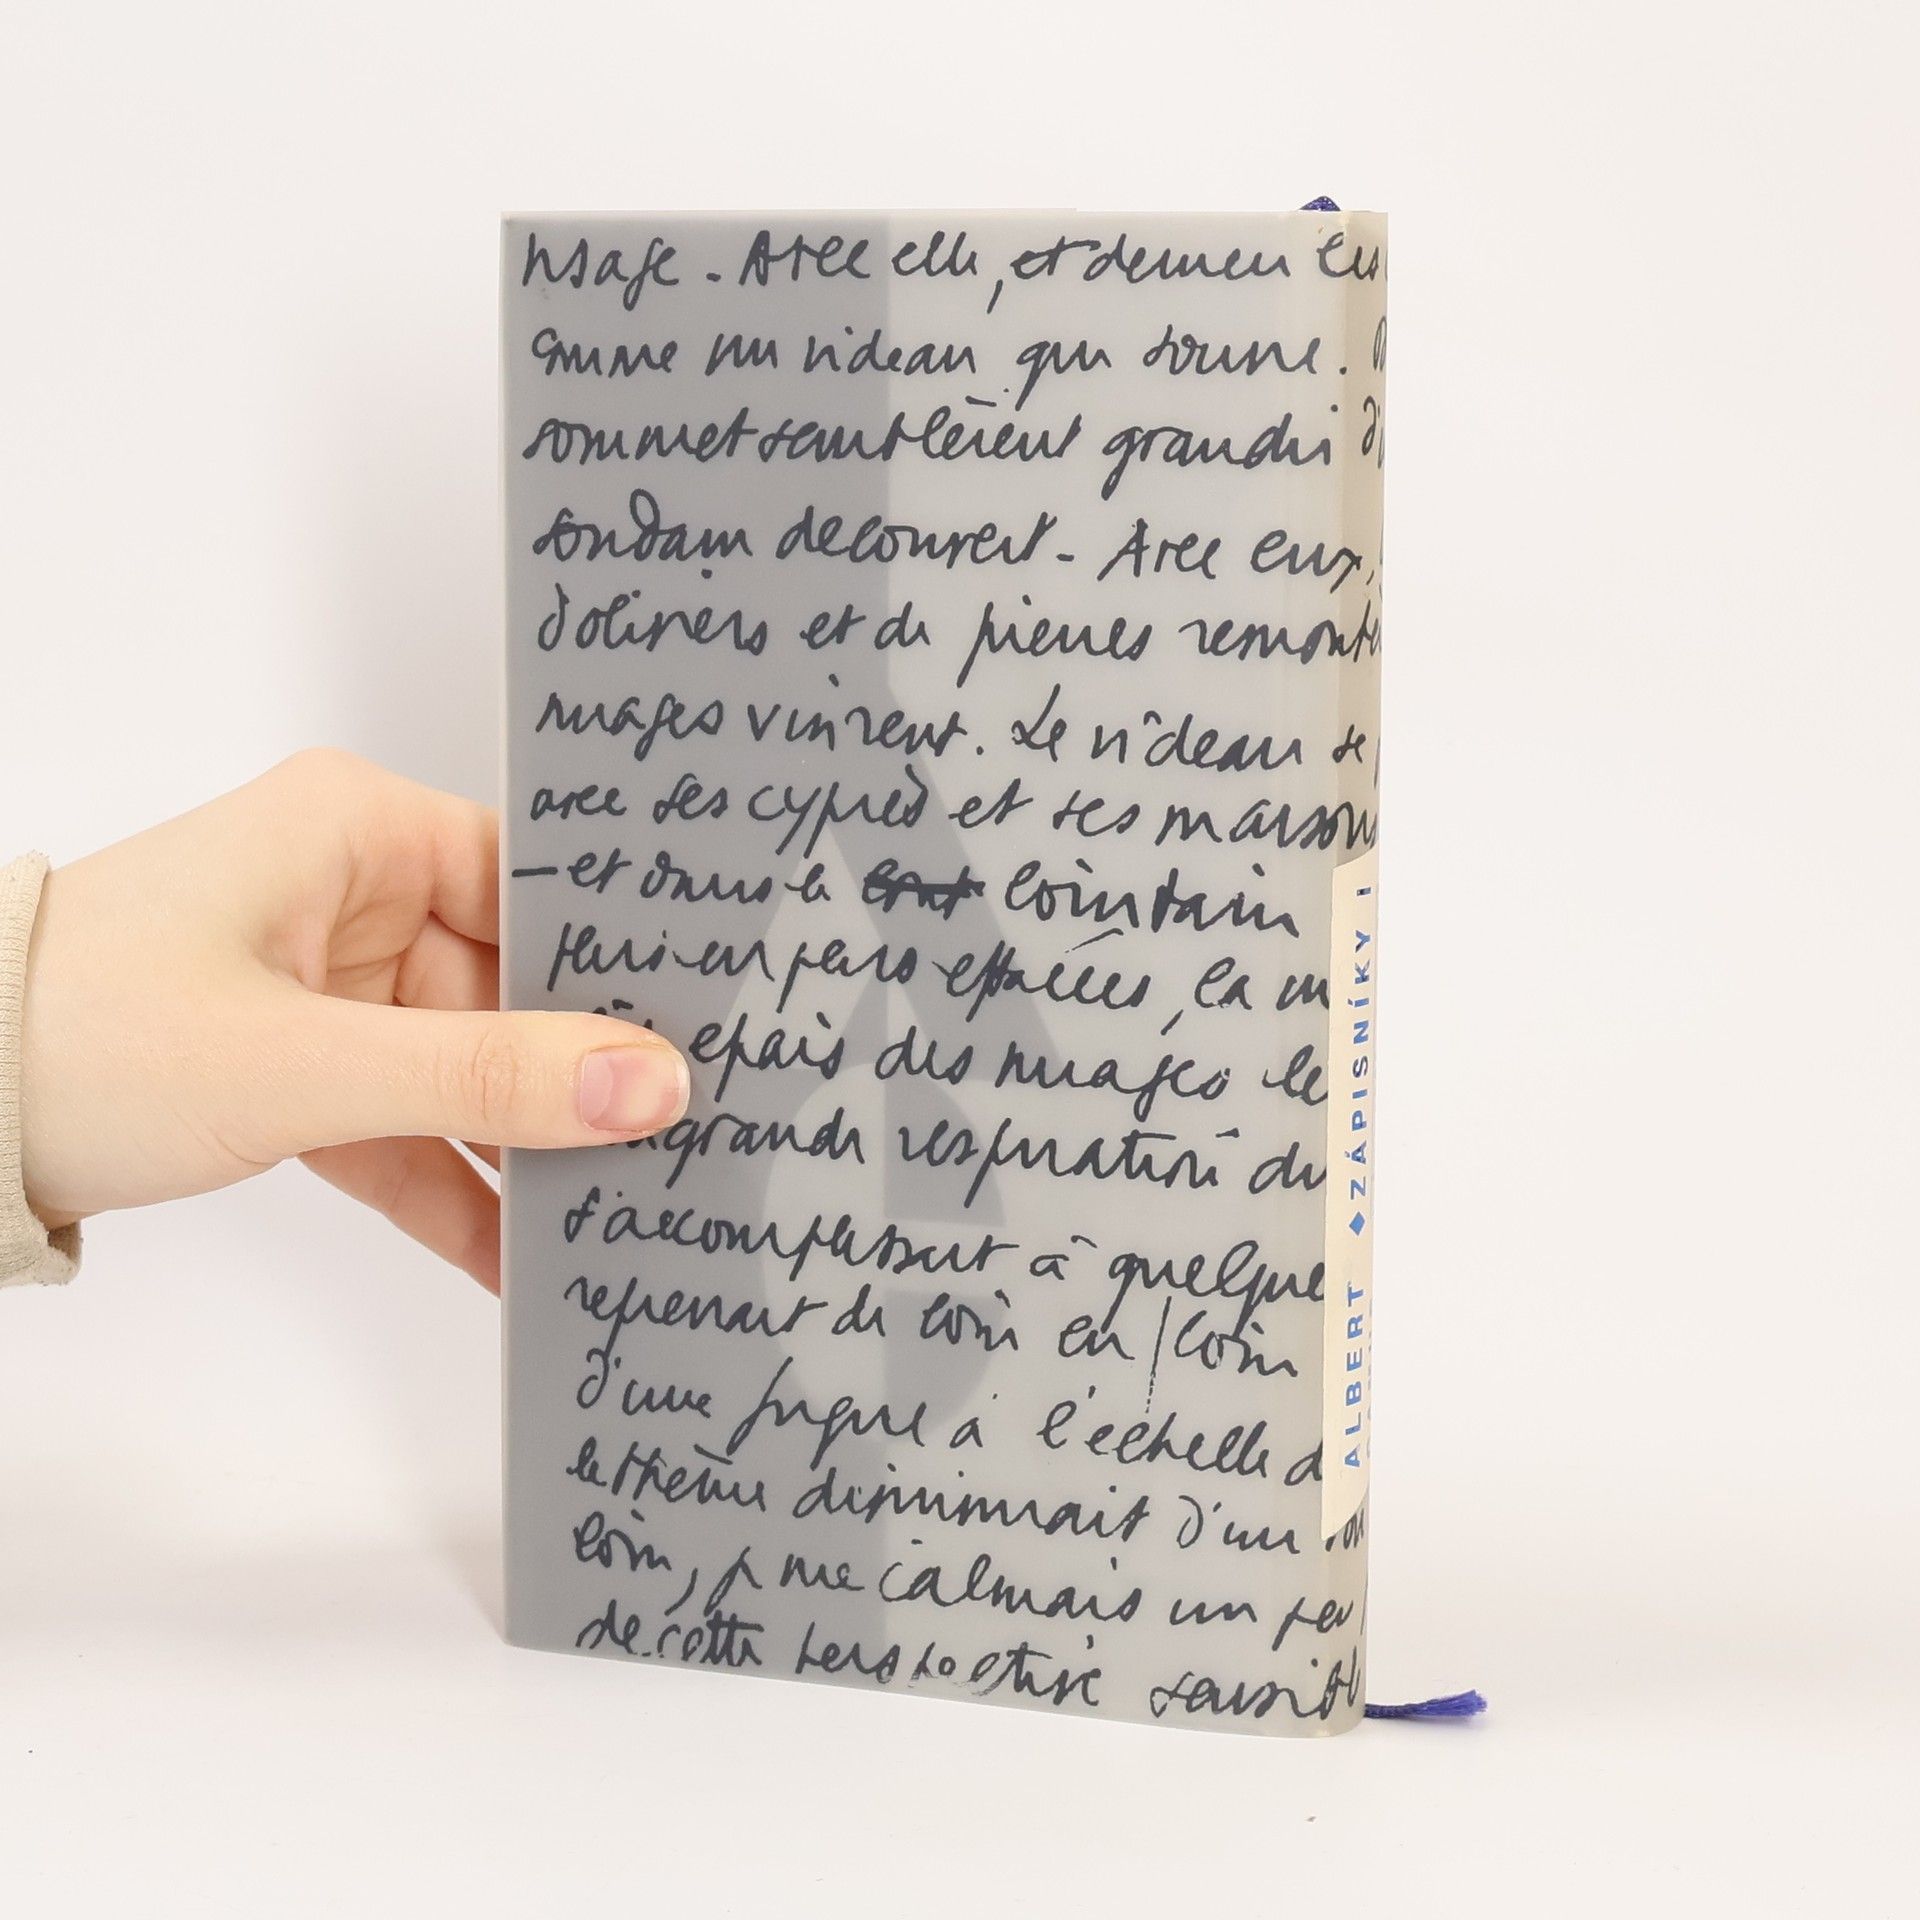 visage. Avec elle, et derrière les
comme un rideau qui s'ouvre.
sommet semblèrent grandir d'
soudain découvert - Avec eux,
d'oliviers et de pierres
nuages vinrent. Le rideau se
avec ses cyprès et ses maisons
- et dans le lointain
effacées, la
épais des nuages
grande respiration du
s'accomplissait à quelque
reprenait de loin en loin
d'une fugue à l'échelle d
le thème diminuait d'un
loin, je me calmais un peu
de cette perspective sensibl
ALBERT ◆ ZÁPISNÍKY I